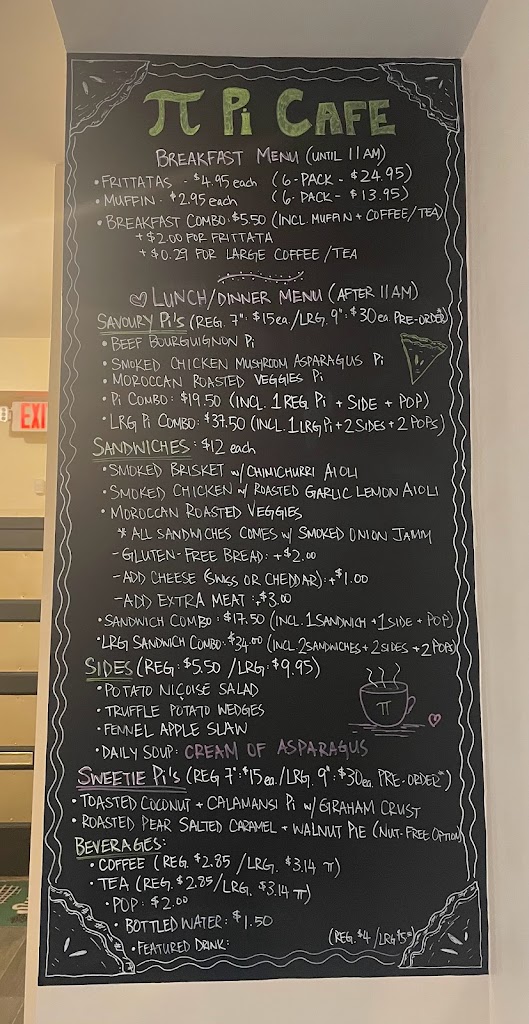 π Pi CAFE
BREAKFAST MENU (UNTIL 11AM)
• FRITTATAS - $4.95 each (6-PACK - $24.95)
• MUFFIN - $2.95 each (6-PACK - $13.95)
• BREAKFAST COMBO: $5.50 (INCL. MUFFIN + COFFEE/TEA)
+ $2.00 FOR FRITTATA
+ $0.29 FOR LARGE COFFEE/TEA
♡ LUNCH/DINNER MENU (AFTER 11AM)
SAVOURY Pi's (REG. 7": $15ea./LRG. 9": $30ea. PRE-ORDER*)
• BEEF BOURGUIGNON Pi
• SMOKED CHICKEN MUSHROOM ASPARAGUS Pi
• MOROCCAN ROASTED VEGGIES Pi
• Pi COMBO: $19.50 (INCL. 1 REG Pi + SIDE + POP)
• LRG Pi COMBO: $37.50 (INCL. 1 LRG Pi + 2 SIDES + 2 POPS)
SANDWICHES: $12 each
• SMOKED BRISKET w/ CHIMICHURRI AIOLI
• SMOKED CHICKEN w/ ROASTED GARLIC LEMON AIOLI
• MOROCCAN ROASTED VEGGIES
* ALL SANDWICHES COMES w/ SMOKED ONION JAMM
- GLUTEN-FREE BREAD: +$2.00
- ADD CHEESE (SWISS OR CHEDDAR): +$1.00
- ADD EXTRA MEAT: +$3.00
• SANDWICH COMBO: $17.50 (INCL. 1 SANDWICH + 1 SIDE + POP)
• LRG SANDWICH COMBO: $34.00 (INCL. 2 SANDWICHES + 2 SIDES + 2 POPS)
SIDES (REG: $5.50 / LRG: $9.95)
• POTATO NIÇOISE SALAD
• TRUFFLE POTATO WEDGES
• FENNEL APPLE SLAW
• DAILY SOUP: CREAM OF ASPARAGUS
π
SWEETIE Pi's (REG 7": $15ea./LRG. 9": $30ea. PRE-ORDER*)
• TOASTED COCONUT + CALAMANSI Pi w/ GRAHAM CRUST
• ROASTED PEAR SALTED CARAMEL + WALNUT PIE (NUT-FREE OPTION)
BEVERAGES:
• COFFEE (REG. $2.85 / LRG. $3.14 π)
• TEA (REG. $2.85/LRG. $3.14 π)
• POP: $2.00
• BOTTLED WATER: $1.50
• FEATURED DRINK: (REG. $4 / LRG $5)
EXI